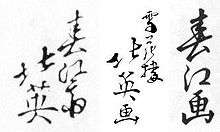 春江画
雪花楼
北英画
春江斎
北英